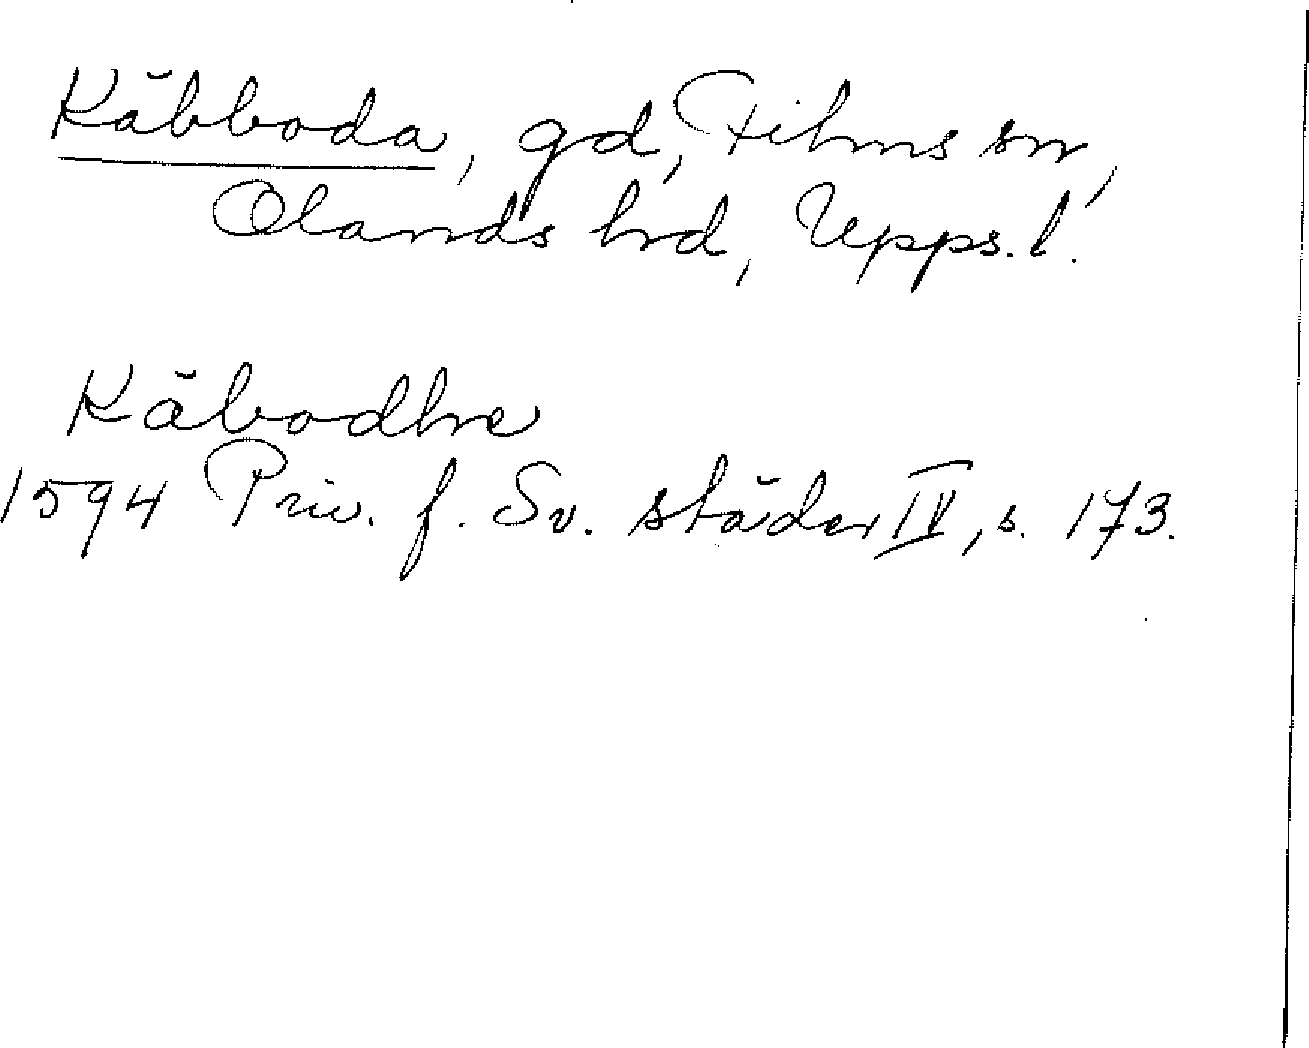 Käbboda, gd, Films sn,
Olands hrd, Upps. l.
Käbodhe
1594 Priv. f. Sv. städer IV, s. 173.